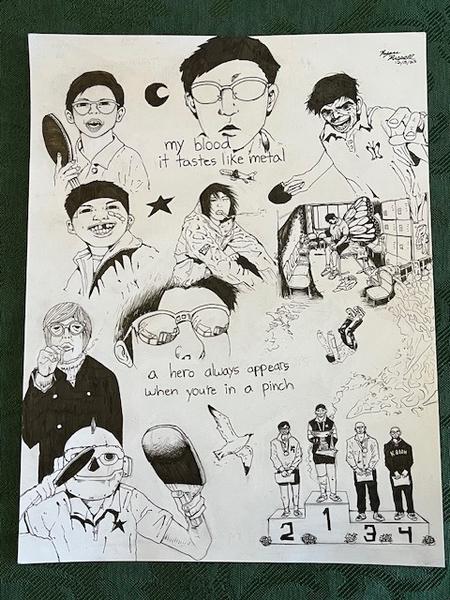 Russell
12/13/23
my blood
it tastes like metal
NY
a hero always appears
when you're in a pinch
2 1 3 4